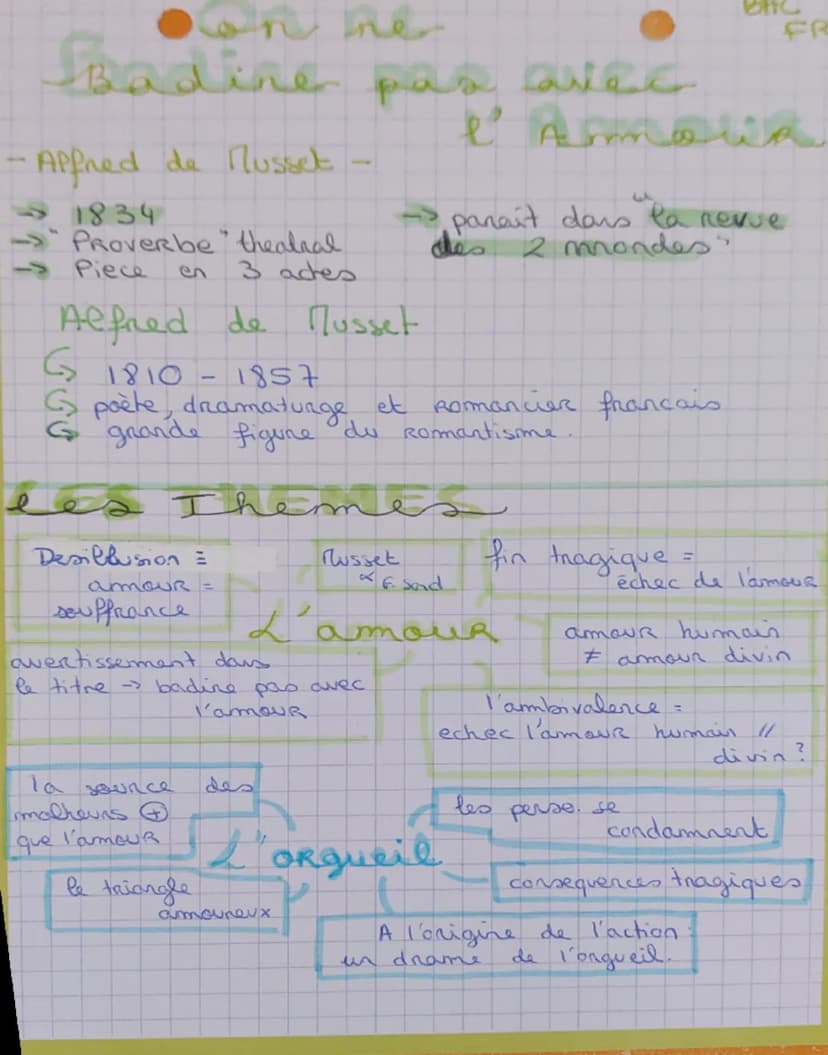 BAC
FR
On ne
Badine pas avec
l'Amour
- Alfred de Musset -
-> 1834
-> "Proverbe" theatral
-> Piece en 3 actes
-> parait dans "la revue
des 2 mondes"
Alfred de Musset
1810 - 1857
poète, dramaturge et romancier francais
grande figure du romantisme.
Les Themes
Desillusion =
amour =
souffrance
Musset
& G. Sand
fin tragique =
échec de l'amour
L'amour
amour humain
≠ amour divin
avertissement dans
le titre -> badine pas avec
l'amour
l'ambivalence =
echec l'amour humain //
divin ?
la source des
malheurs ⊕
que l'amour
les perso. se
condamnent
L'orgueil
le triangle
amoureux
consequences tragiques
A l'origine de l'action :
un drame de l'orgueil.